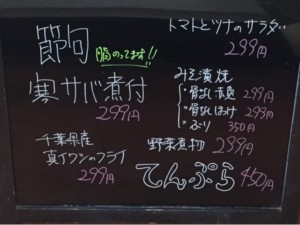 節句
脂のってます!!
寒サバ煮付
299円
千葉県産
真イワシのフライ
299円
トマトとツナのサラダ
299円
みそ漬焼
・骨なし赤魚 299円
・骨なしほっけ 299円
・ぶり 350円
野菜煮物 299円
てんぷら 450円